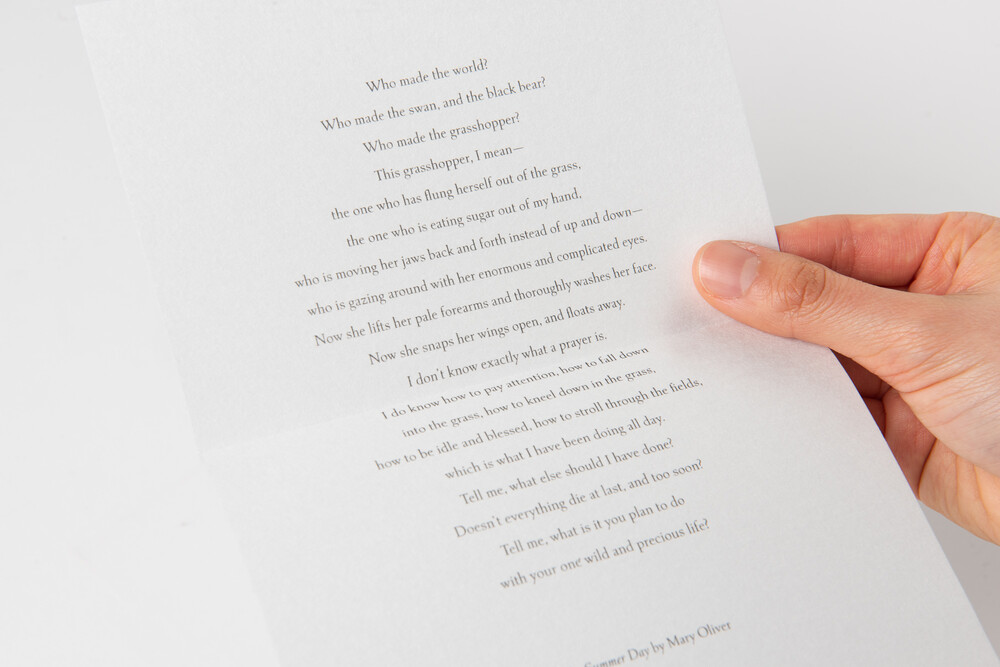 Who made the world?
Who made the swan, and the black bear?
Who made the grasshopper?
This grasshopper, I mean—
the one who has flung herself out of the grass,
the one who is eating sugar out of my hand,
who is moving her jaws back and forth instead of up and down—
who is gazing around with her enormous and complicated eyes.
Now she lifts her pale forearms and thoroughly washes her face.
Now she snaps her wings open, and floats away.
I don't know exactly what a prayer is.
I do know how to pay attention, how to fall down
into the grass, how to kneel down in the grass,
how to be idle and blessed, how to stroll through the fields,
which is what I have been doing all day.
Tell me, what else should I have done?
Doesn't everything die at last, and too soon?
Tell me, what is it you plan to do
with your one wild and precious life?
Summer Day by Mary Oliver